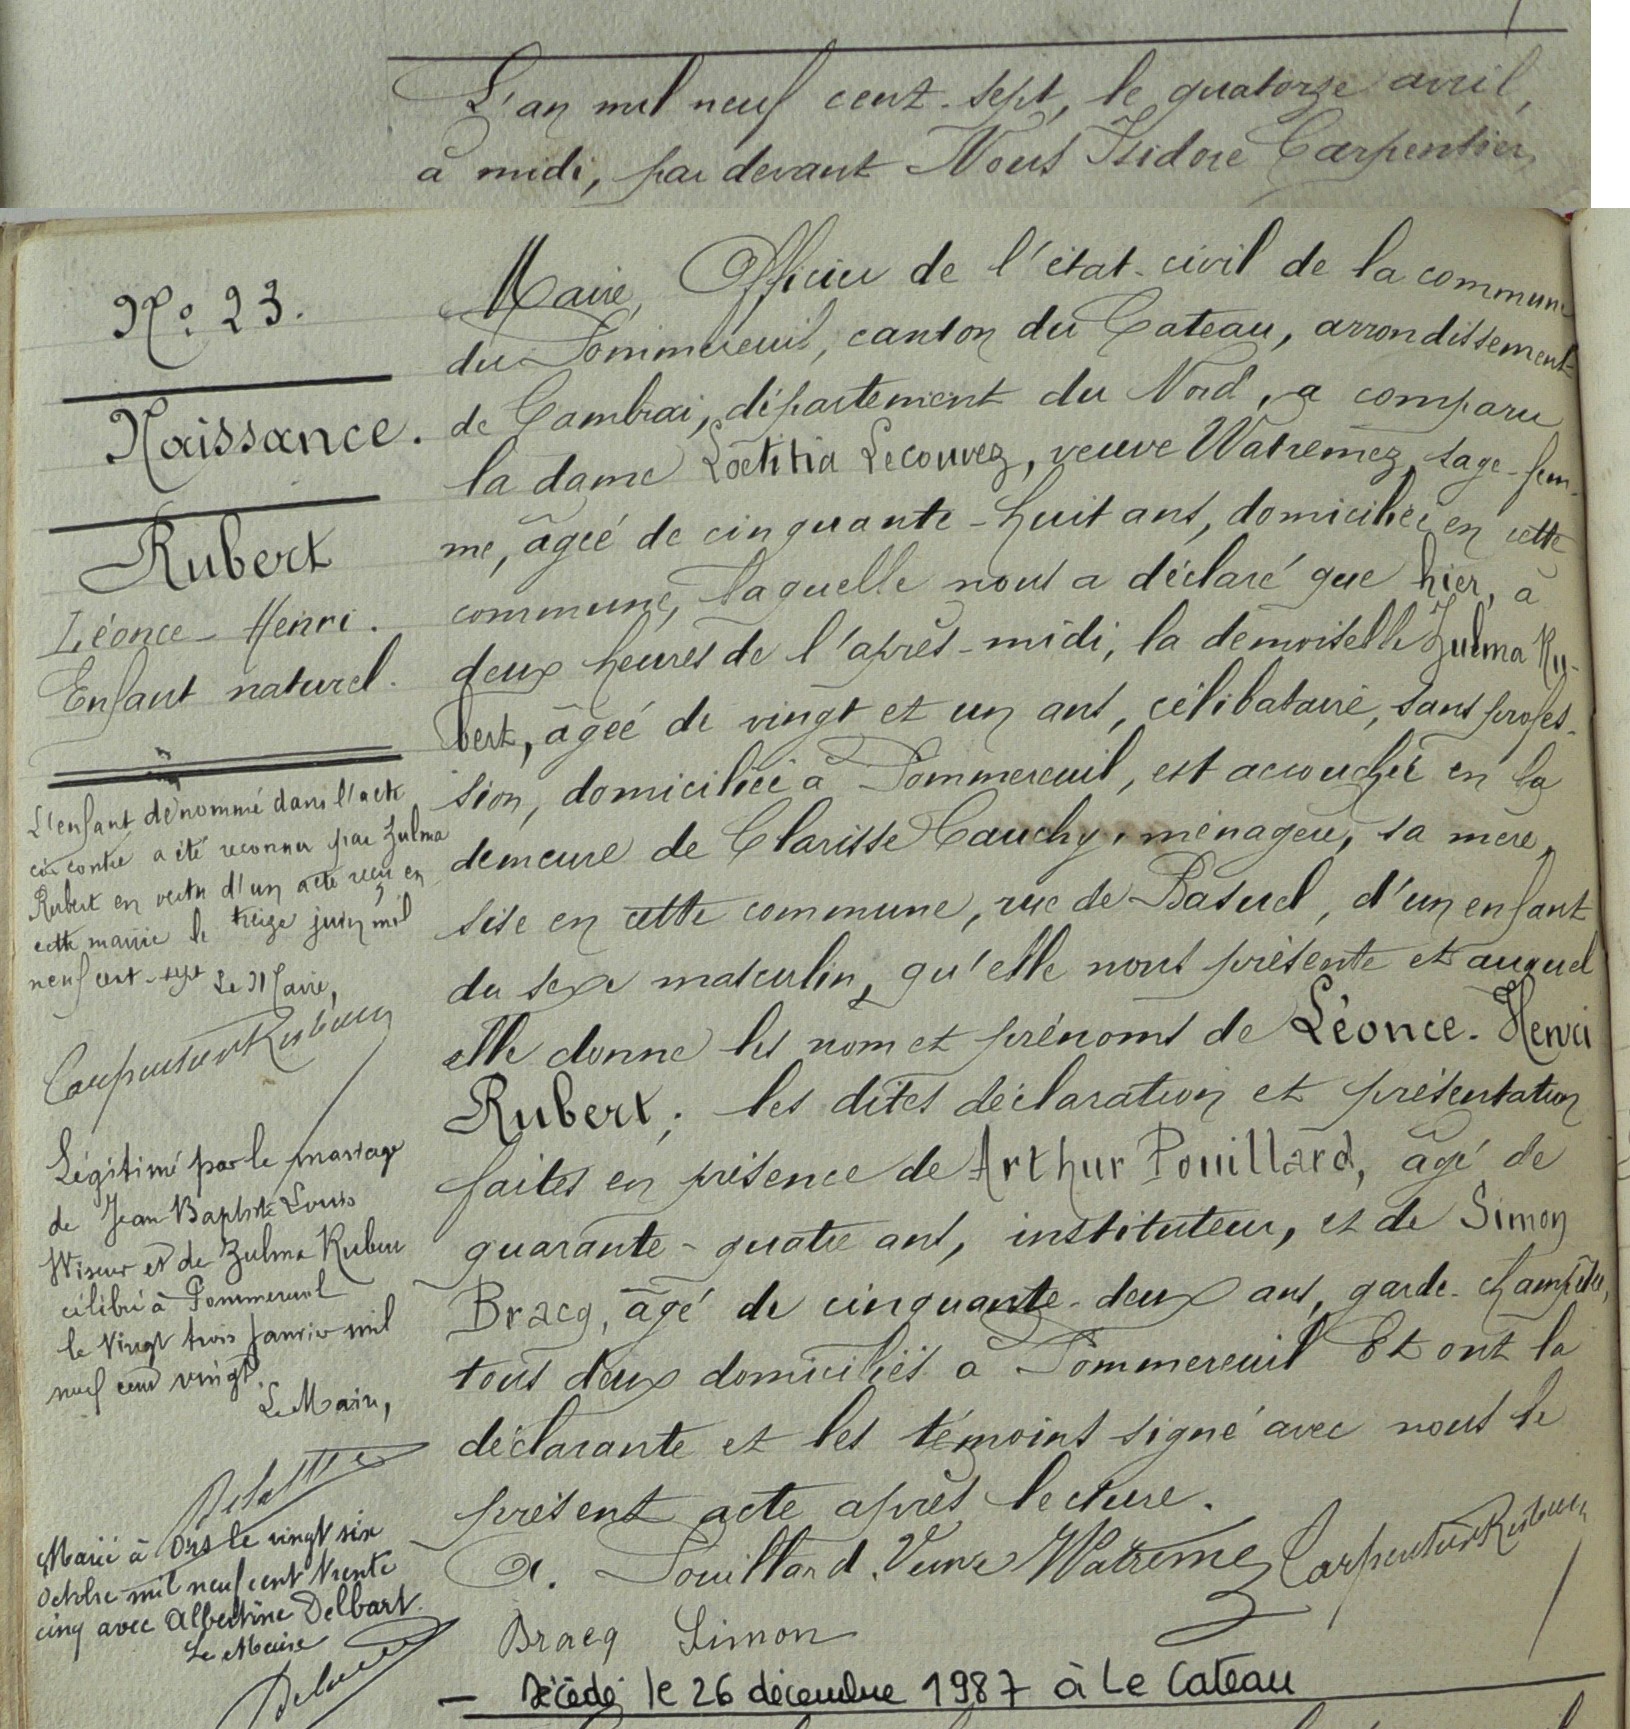 L'an mil neuf cent-sept, le quatorze avril,
à midi, par devant Nous Isidore Carpentier,
Maire, Officier de l'état-civil de la commune
du Pommereuil, canton du Cateau, arrondissement
de Cambrai, département du Nord, a comparu
la dame Loetitia Lecouvez, veuve Watremez, sage-fem-
me, âgée de cinquante-huit ans, domiciliée en cette
commune, laquelle nous a déclaré que hier, à
deux heures de l'après-midi, la demoiselle Zulma Ru-
bert, âgée de vingt et un ans, célibataire, sans profes-
sion, domiciliée à Pommereuil, est accouchée en la
demeure de Clarisse Cauchy, ménagère, sa mère,
sise en cette commune, rue de Basuel, d'un enfant
du sexe masculin, qu'elle nous présente et auquel
elle donne les nom et prénoms de Léonce-Henri
Rubert; les dites déclaration et présentation
faites en présence de Arthur Pouillard, âgé de
quarante-quatre ans, instituteur, et de Simon
Bracq, âgé de cinquante-deux ans, garde-champêtre,
tous deux domiciliés à Pommereuil Et ont la
déclarante et les témoins signé avec nous le
présent acte après lecture.
A. Pouillard Veuve Watremez
Bracq Simon
Décédé le 26 décembre 1987 à Le Cateau
No 23.
Naissance.
Rubert
Léonce-Henri.
Enfant naturel.
L'enfant dénommé dans l'acte
ci-contre a été reconnu par Zulma
Rubert en vertu d'un acte reçu en
cette mairie le treize juin mil
neuf cent-sept Le Maire,
Légitimé par le mariage
de Jean Baptiste Louis
et de Zulma Rubert
célébré à Pommereuil
le vingt trois janvier mil
neuf cent vingt.
Le Maire,
Marié à Ors le vingt six
Octobre mil neuf cent trente
cinq avec Albertine Delbart.
Le Maire